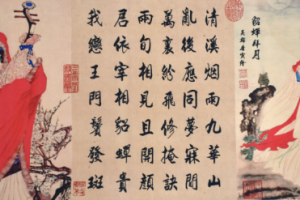 貂蟬拜月
清溪煙雨九華山
亂後應同夢寐間
萬裏紛飛修掩訣
兩旬相見且開顏
君依宰相貂蟬貴
我戀王門鬢發斑